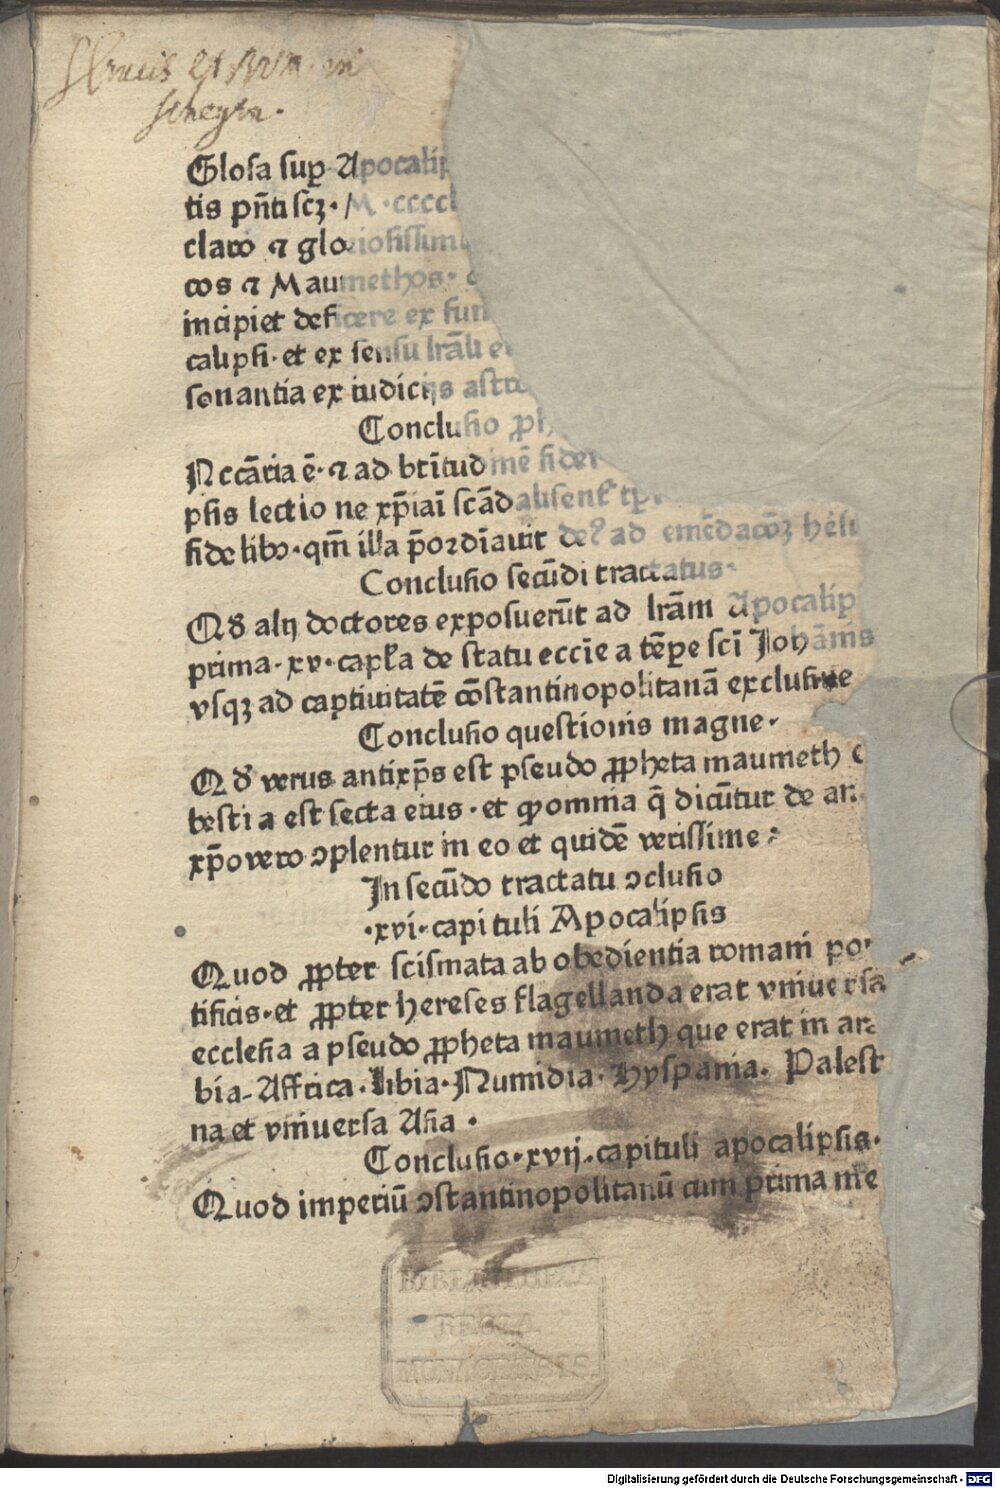 Glosa suꝑ Apocalip
tis pn̄ti scꝫ · M · ccccl
claro ⁊ gloriosissim
cos ⁊ Maumethos ·
incipiet deficere ex fun
calipsi · et ex sensu lrāli e
sonantia ex iudicijs astro
Conclusio ph
Nccāria ē · ⁊ ad btītudinē fidei
psis lectio ne xp̄iaī scādalisent᷑
fide libo · qm̄ illa p̄ordīavit deꝰ ad emēdacōꝫ
Conclusio secūdi tractatus ·
Qd̕ alij doctores exposuerūt ad lrām Apocalip
prima · xv · capl̕a de statu eccīe a tēpe scī Johānis
vsqꝫ ad captiuitatē cōstantinopolitanā exclusiue
Conclusio questionis magne ·
Qd̕ verus antixp̄s est pseudo ꝓpheta maumeth
bestia est secta eius · et ꝙ omnia q̄ dicūtur de an
xp̄o vero ↄplentur in eo et quidē verissime :
In secūdo tractatu ↄclusio
· xvi · capituli Apocalipsis
Quod ꝓpter scismata ab obedientia romani pon
tificis · et ꝓpter hereses flagellanda erat vniuersa
ecclesia a pseudo ꝓpheta maumeth que erat in ara
bia - Affrica · libia · Numidia · Hyspania · Palest
na et vniuersa Asia ·
Conclusio · xvij · capituli apocalipsis ·
Quod imperiū ↄstantinopolitanū cum prima me
BIBLIOTHECA
REGIA
MONACENSIS.
Digitalisierung gefördert durch die Deutsche Forschungsgemeinschaft - DFG